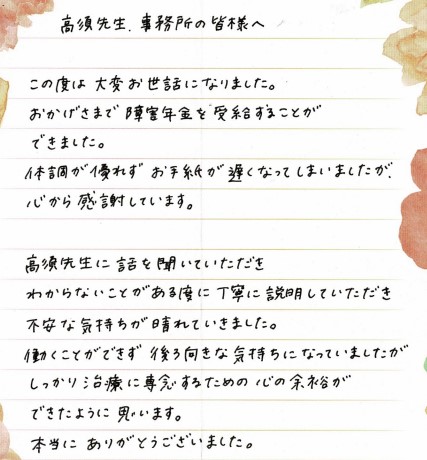 高須先生、事務所の皆様へ
この度は大変お世話になりました。
おかげさまで障害年金を受給することが
できました。
体調が優れずお手紙が遅くなってしまいましたが、
心から感謝しています。
高須先生に話を聞いていただき
わからないことがある度に丁寧に説明していただき
不安な気持ちが晴れていきました。
働くことができず後ろ向きな気持ちになっていましたが
しっかり治療に専念するための心の余裕が
できたように思います。
本当にありがとうございました。